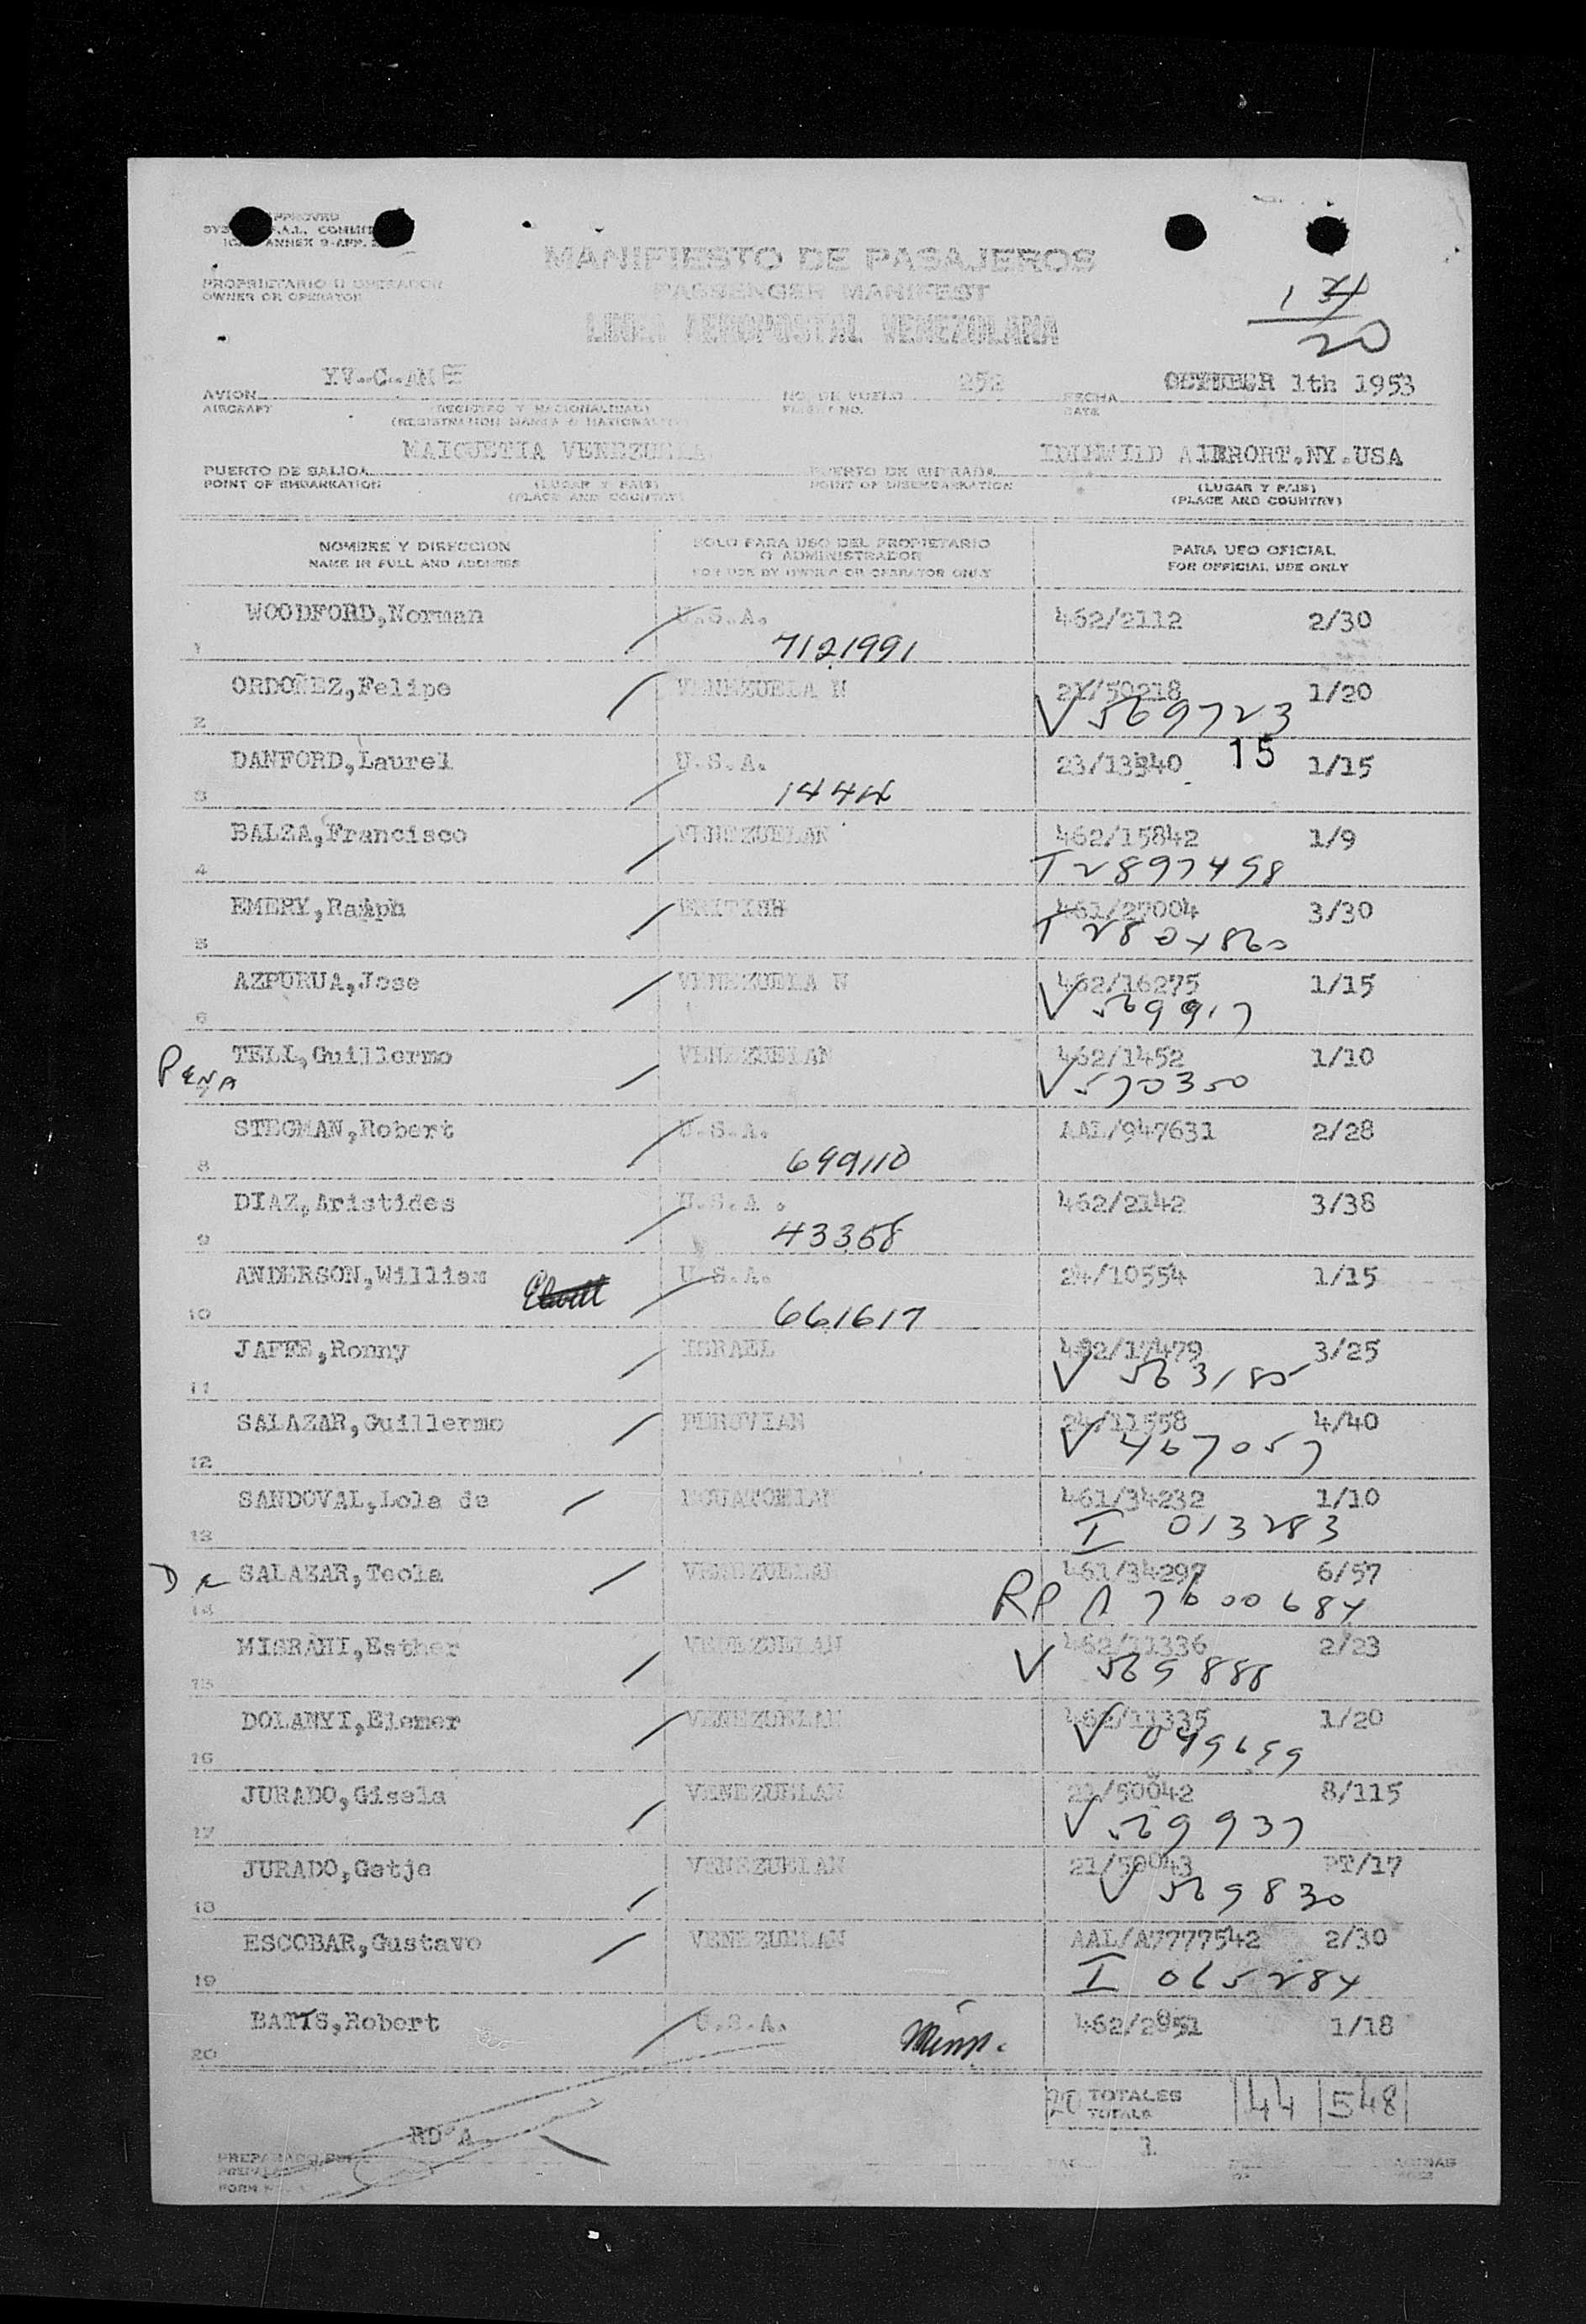 APPROVED
ANNEX 9-APP.
MANIFIESTO DE PASAJEROS
PASSENGER MANIFEST
LINEA AEROPOSTAL VENEZOLANA
PROPIETARIO U OPERADOR
OWNER OR OPERATOR
20
YV-C-AME 252 OCTUBER 1th 1953
AVION NO. DE VUELO FECHA
AIRCRAFT (REGISTRO Y NACIONALIDAD) FLIGHT NO. DATE
(REGISTRATION MARKS & NATIONALITY)
MAIQUETIA VENEZUELA IDLEWILD AIRRORT.NY.USA
PUERTO DE SALIDA PUERTO DE ENTRADA
POINT OF EMBARKATION (LUGAR Y PAIS) POINT OF DISEMBARKATION (LUGAR Y PAIS)
(PLACE AND COUNTRY) (PLACE AND COUNTRY)
NOMBRE Y DIRECCION SOLO PARA USO DEL PROPIETARIO PARA USO OFICIAL
NAME IN FULL AND ADDRESS O ADMINISTRADOR FOR OFFICIAL USE ONLY
FOR USE BY OWNER OR OPERATOR ONLY
WOODFORD,Norman U.S.A. 462/2112 2/30
1 7121991
ORDOÑEZ,Felipe VENEZUELA N 21/50218 1/20
2 V 569723
DANFORD,Laurel U.S.A. 23/13340 15 1/15
3 1444
BALZA,Francisco VENEZUELAN 462/15842 1/9
4 I 2897498
EMERY,Ralph BRITISH 461/27004 3/30
5 I 2804820
AZPURUA,Jose VENEZUELA N 462/16275 1/15
6 V 569917
TELL,Guillermo VENEZUELAN 462/1452 1/10
PENA 7 V 570350
STEGMAN,Robert U.S.A. AAL/947631 2/28
8 699110
DIAZ,Aristides U.S.A. 462/2142 3/38
9 43368
ANDERSON,William U.S.A. 24/10554 1/15
10 661617
JAFFE,Ronny ISRAEL 462/17479 3/25
11 V 563185
SALAZAR,Guillermo PEROVIAN 24/11558 4/40
12 V 467057
SANDOVAL,Lola de ECUATORIAN 461/34232 1/10
13 I 013283
SALAZAR,Teola VENEZUELAN 461/34297 6/57
14 RP A 7600684
MISRAHI,Esther VENEZUELAN 462/11336 2/23
15 V 569888
DOLANYI,Elemer VENEZUELAN 462/11335 1/20
16 V 049659
JURADO,Gisela VENEZUELAN 21/50042 8/115
17 V 569937
JURADO,Gatje VENEZUELAN 21/50043 PT/17
18 V 569830
ESCOBAR,Gustavo VENEZUELAN AAL/A7777542 2/30
19 I 065284
BATTS,Robert U.S.A. 462/2951 1/18
20
20 TOTALES 44 548
TOTALS
RD A. 1
PREPARADO POR
FORM